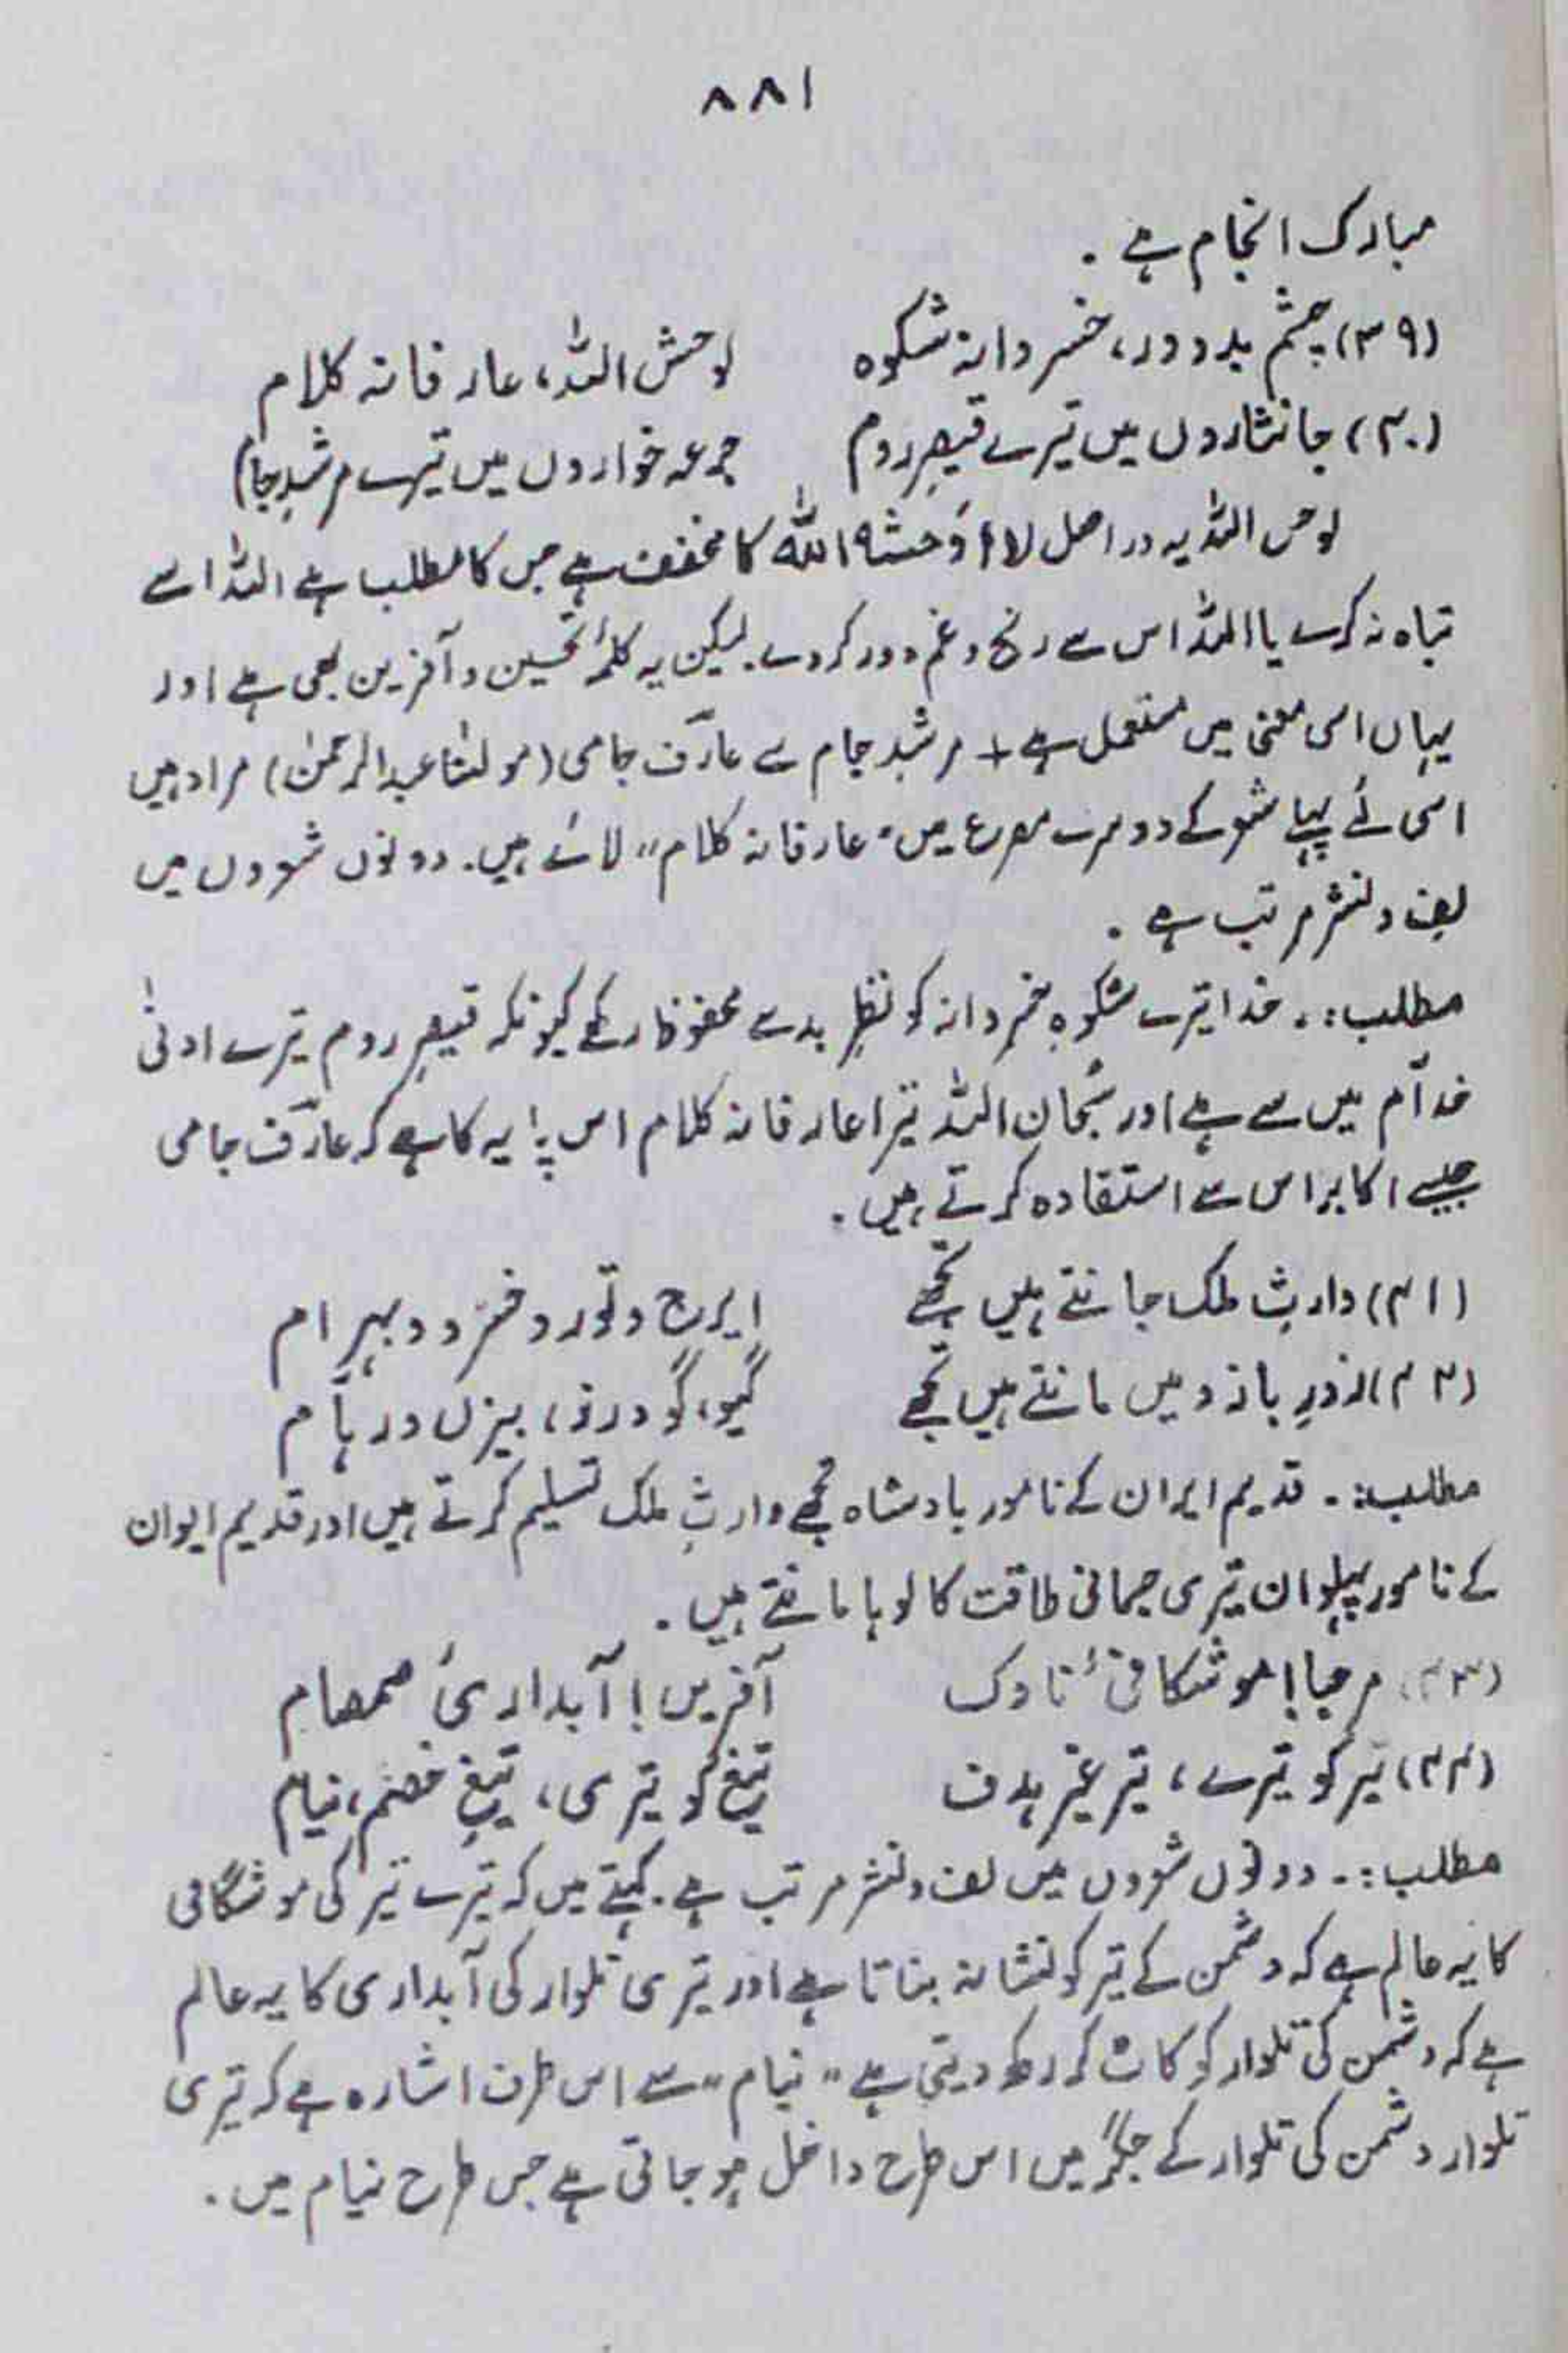 ۸۸۱
مبارک انجام ہے .
(۳۹) چشمِ بد دور، خسروانہ شکوہ لوحش اللہ، عارفانہ کلام
(۴۰) جانثاروں میں تیرے قیصرِ روم جرعہ خواروں میں تیرے مرشدِ جام
لوحش اللہ یہ دراصل لا اَوحشہ اللہ کا مخفف ہے جس کا مطلب ہے اللہ اسے
تباہ نہ کرے یا اللہ اس سے رنج و غم دور کردے. لیکن یہ کلمۂ تحسین و آفرین بھی ہے اور
یہاں اسی معنی میں مستعمل ہے + مرشدِ جام سے عارف جامی (مولٰنا عبدالرحمٰن) مراد ہیں
اسی لئے پہلے شعر کے دوسرے مصرع میں "عارفانہ کلام" لائے ہیں. دونوں شعروں میں
لف و نشر مرتب ہے .
مطلب:۔ خدا تیرے شکوہِ خسروانہ کو نظرِ بد سے محفوظ رکھے کیونکہ قیصرِ روم تیرے ادنٰی
خدّام میں سے ہے اور سُبحان اللہ تیرا عارفانہ کلام اس پایہ کا ہے کہ عارف جامی
جیسے اکابر اس سے استفادہ کرتے ہیں .
(۴۱) وارثِ ملک جانتے ہیں تجھے ایرج و تور و خسرو و بہرام
(۴۲) زورِ بازو میں مانتے ہیں تجھے گیو، گودرز، بیزن و رہام
مطلب:۔ قدیم ایران کے نامور بادشاہ تجھے وارثِ ملک تسلیم کرتے ہیں اور قدیم ایران
کے نامور پہلوان تیری جسمانی طاقت کا لوہا مانتے ہیں .
(۴۳) مرحبا! موشگافیٔ ناوک آفریں! آبداریٔ صمصام
(۴۴) تیر کو تیرے، تیرِ غیر ہدف تیغ کو تیری، تیغِ خصم، نیام
مطلب:۔ دونوں شعروں میں لف و نشر مرتب ہے. کہتے ہیں کہ تیرے تیر کی موشگافی
کا یہ عالم ہے کہ دشمن کے تیر کو نشانہ بناتا ہے اور تیری تلوار کی آبداری کا یہ عالم
ہے کہ دشمن کی تلوار کو کاٹ کر رکھ دیتی ہے "نیام" سے اس طرف اشارہ ہے کہ تیری
تلوار دشمن کی تلوار کے جگر میں اس طرح داخل ہو جاتی ہے جس طرح نیام میں .